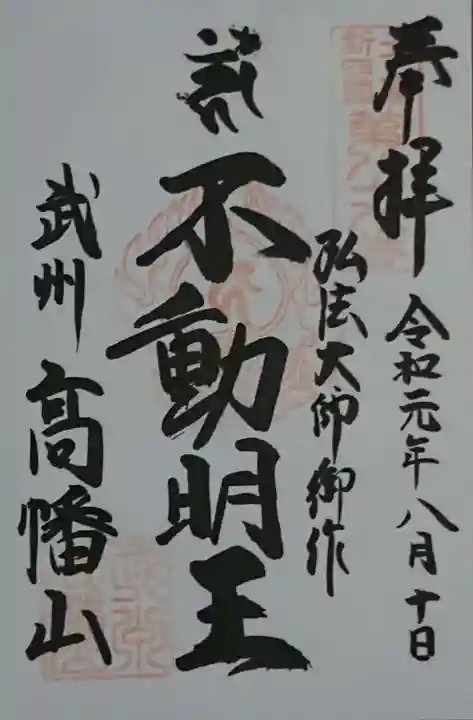 奉拝 令和元年八月十日
弘法大師御作
不動明王
武州 高幡山